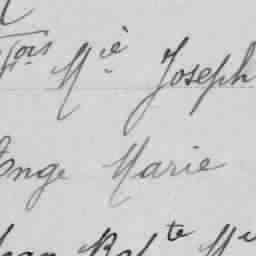 Fois Mie Joseph
Ange Marie
Jean Bte Me